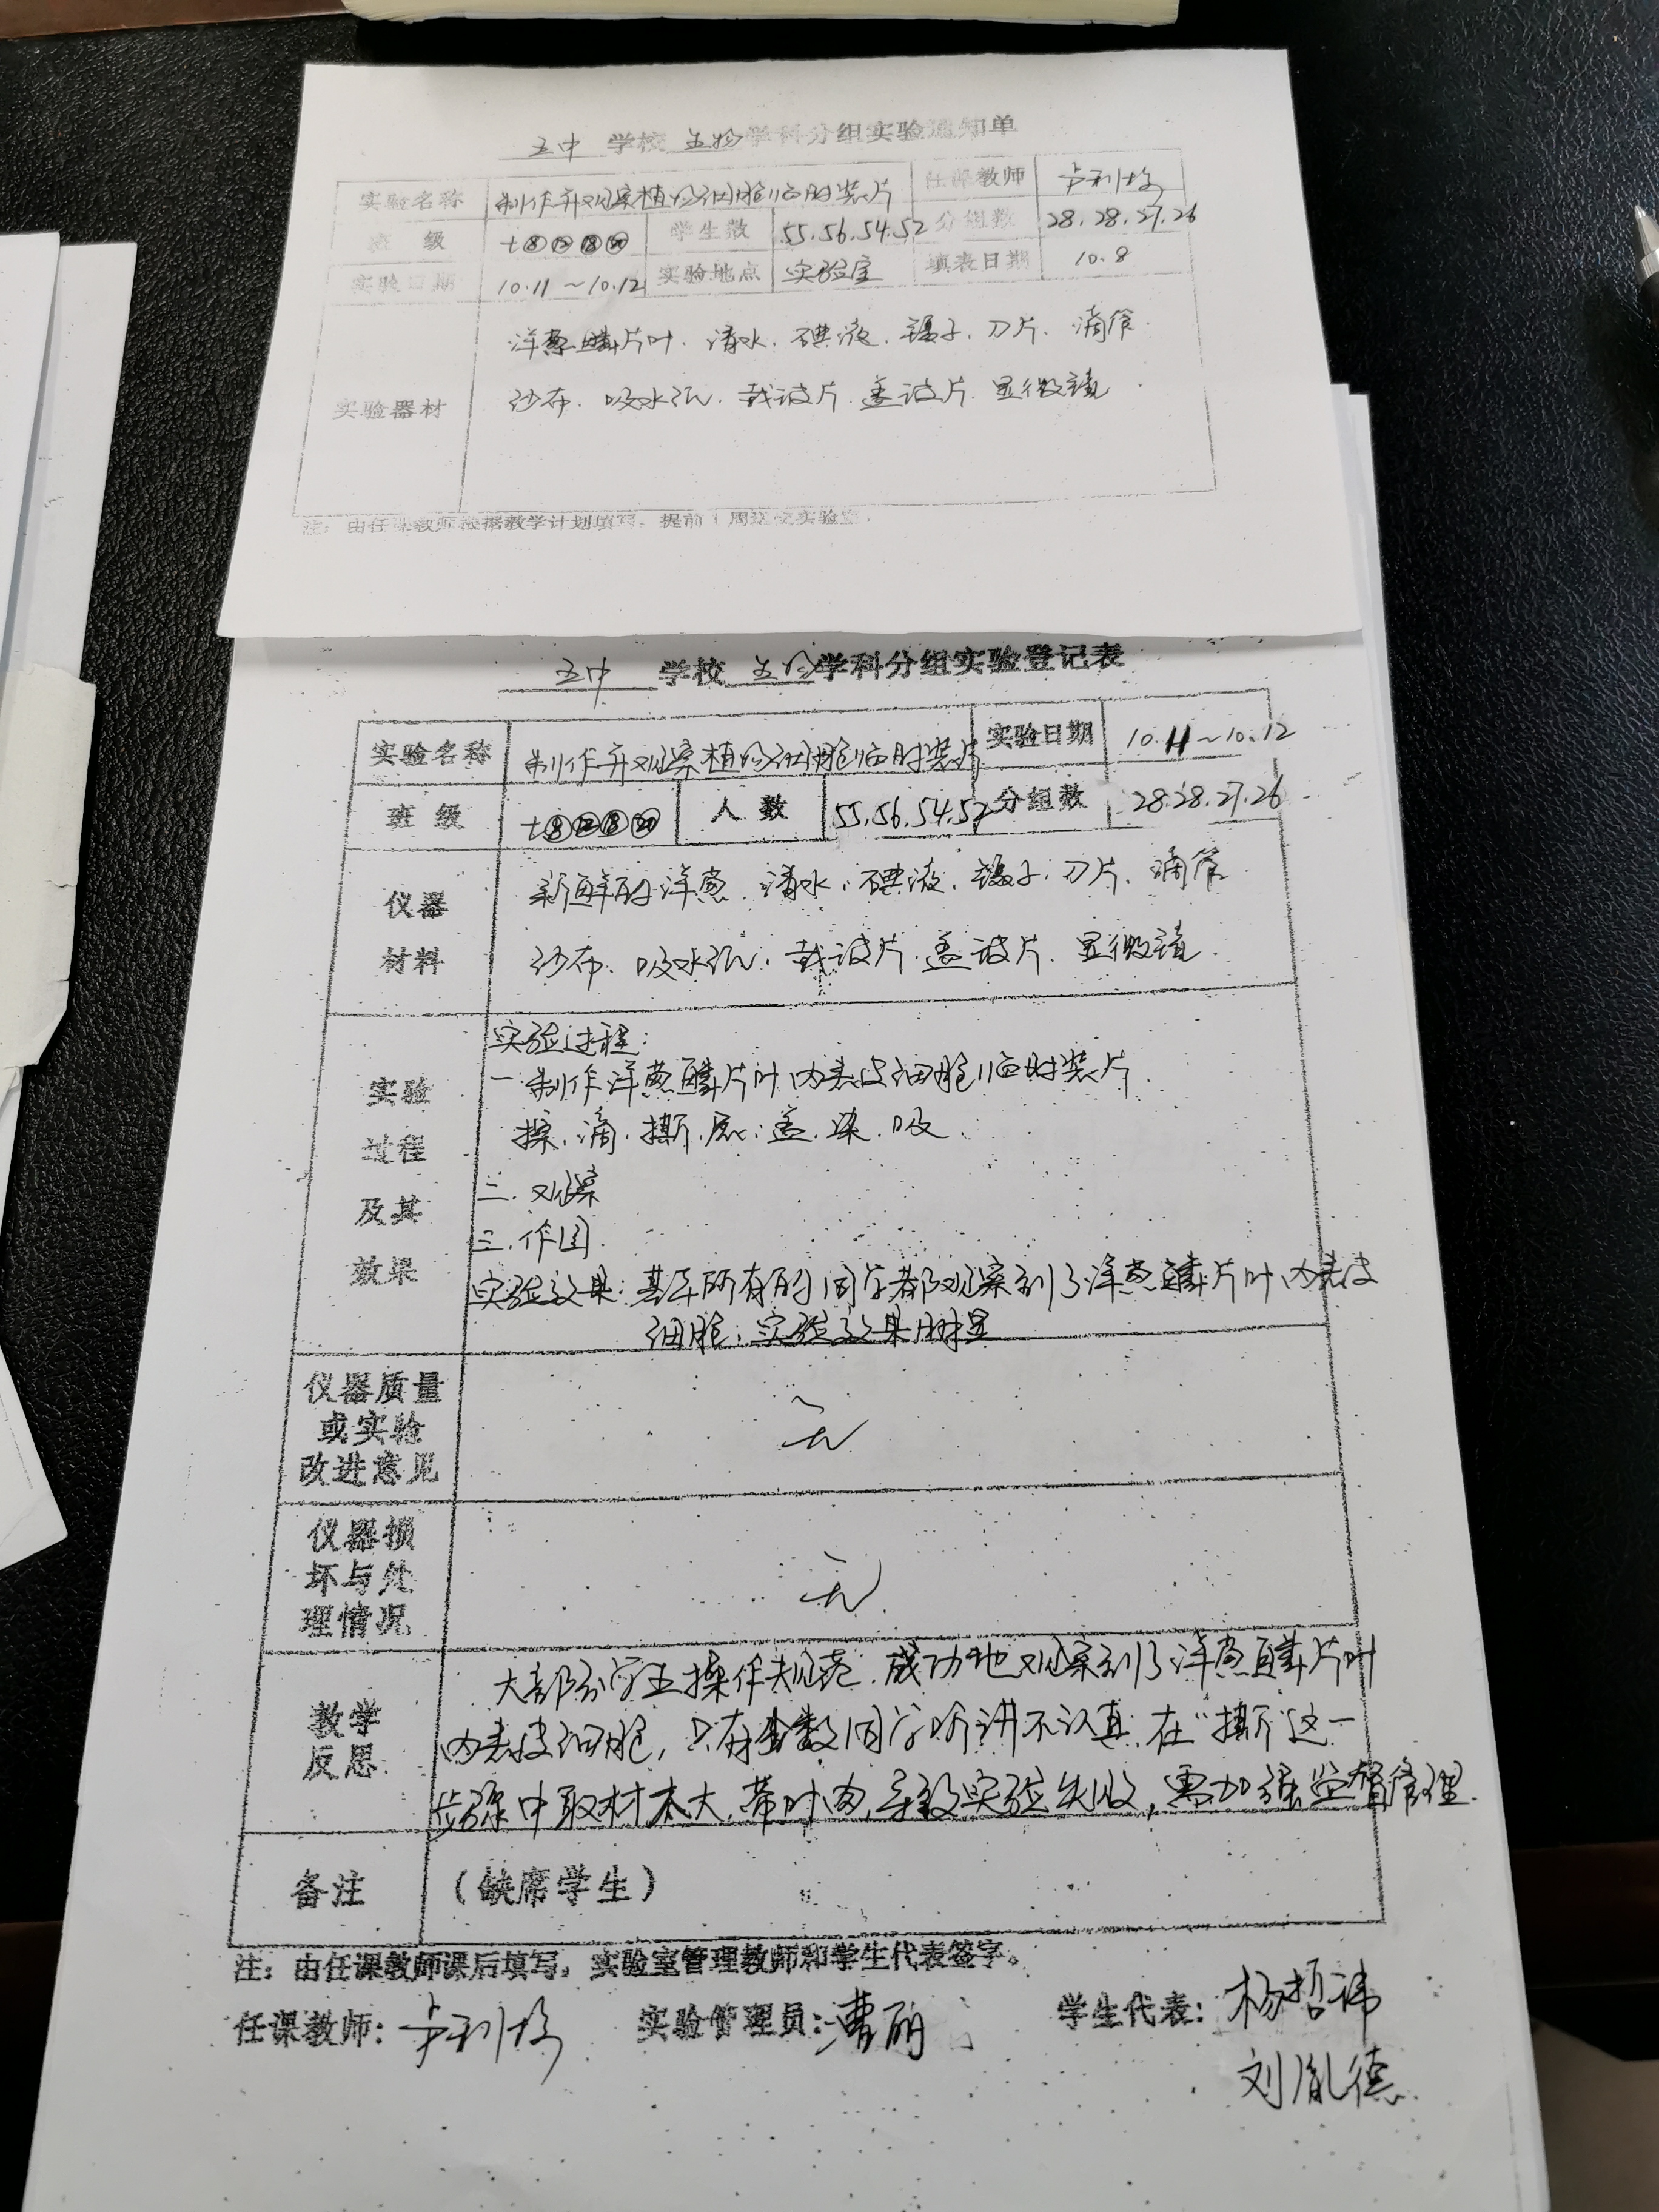 五中 学校 生物学科分组实验通知单
实验名称 制作并观察植物细胞临时装片 任课教师 卢利
班 级 七⑧⑫⑱⑳ 学生数 55.56.54.52 分组数 28.28.27.26
实验日期 10.11～10.12 实验地点 实验室 填表日期 10.8
洋葱鳞片叶．清水．碘液．镊子．刀片．滴管．
实验器材 纱布．吸水纸．载玻片．盖玻片．显微镜．
注：由任课教师根据教学计划填写，提前1周送交实验室。
五中 学校 生物学科分组实验登记表
实验名称 制作并观察植物细胞临时装片 实验日期 10.11～10.12
班 级 七⑧⑫⑱⑳ 人 数 55.56.54.52 分组数 28.28.27.26
仪器 新鲜的洋葱．清水．碘液．镊子．刀片．滴管
材料 纱布．吸水纸．载玻片．盖玻片．显微镜．
实验过程：
实验 一．制作洋葱鳞片叶内表皮细胞临时装片．
过程 擦．滴．撕．展．盖．染．吸
及其 二．观察
三．作图．
效果 实验效果：基本所有的同学都观察到了洋葱鳞片叶内表皮
细胞；实验效果明显
仪器质量
或实验 无
改进意见
仪器损
坏与处 无
理情况
大部分学生操作规范．成功地观察到了洋葱鳞片叶
教学 内表皮细胞，只有少数同学听讲不认真．在“撕”这一
反思 步骤中取材太大．带叶肉．导致实验失败，需加强监督管理．
备注 （缺席学生）
注：由任课教师课后填写，实验室管理教师和学生代表签字。
任课教师：卢利 实验管理员：曹丽 学生代表：杨哲祎
刘胤德